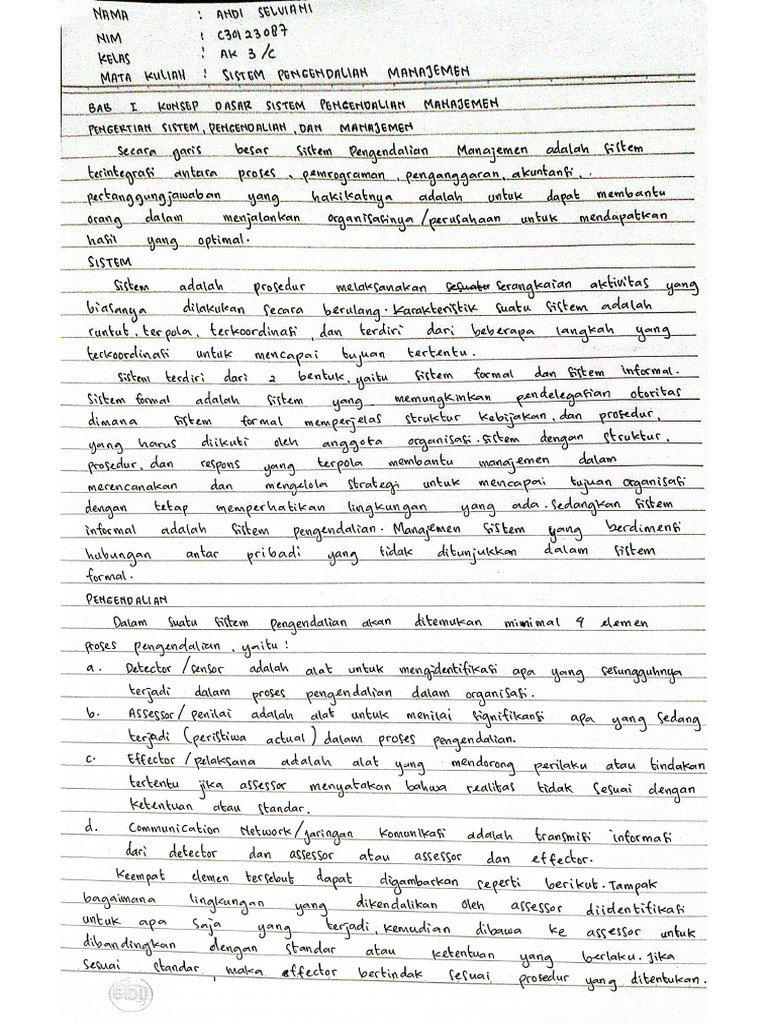 NAMA : ANDI SELVIANI
NIM : C30123087
KELAS : AK 3/C
MATA KULIAH : SISTEM PENGENDALIAN MANAJEMEN
BAB I KONSEP DASAR SISTEM PENGENDALIAN MANAJEMEN
PENGERTIAN SISTEM, PENGENDALIAN, DAN MANAJEMEN
Secara garis besar Sistem Pengendalian Manajemen adalah sistem
terintegrasi antara proses, pemrograman, penganggaran, akuntansi,
pertanggungjawaban yang hakikatnya adalah untuk dapat membantu
orang dalam menjalankan organisasinya/perusahaan untuk mendapatkan
hasil yang optimal.
SISTEM
Sistem adalah prosedur melaksanakan sesuatu serangkaian aktivitas yang
biasanya dilakukan secara berulang. Karakteristik suatu sistem adalah
runtut, terpola, terkoordinasi, dan terdiri dari beberapa langkah yang
terkoordinasi untuk mencapai tujuan tertentu.
Sistem terdiri dari 2 bentuk, yaitu sistem formal dan sistem informal.
Sistem formal adalah sistem yang memungkinkan pendelegasian otoritas
dimana sistem formal memperjelas struktur kebijakan, dan prosedur,
yang harus diikuti oleh anggota organisasi. Sistem dengan struktur,
prosedur, dan respons yang terpola membantu manajemen dalam
merencanakan dan mengelola strategi untuk mencapai tujuan organisasi
dengan tetap memperhatikan lingkungan yang ada. Sedangkan sistem
informal adalah sistem pengendalian. Manajemen sistem yang berdimensi
hubungan antar pribadi yang tidak ditunjukkan dalam sistem
formal.
PENGENDALIAN
Dalam suatu sistem pengendalian akan ditemukan minimal 4 elemen
proses pengendalian, yaitu:
a. Detector/sensor adalah alat untuk mengidentifikasi apa yang sesungguhnya
terjadi dalam proses pengendalian dalam organisasi.
b. Assessor/penilai adalah alat untuk menilai signifikansi apa yang sedang
terjadi (peristiwa actual) dalam proses pengendalian.
c. Effector/pelaksana adalah alat yang mendorong perilaku atau tindakan
tertentu jika assessor menyatakan bahwa realitas tidak sesuai dengan
ketentuan atau standar.
d. Communication Network/jaringan komunikasi adalah transmisi informasi
dari detector dan assessor atau assessor dan effector.
Keempat elemen tersebut dapat digambarkan seperti berikut. Tampak
bagaimana lingkungan yang dikendalikan oleh assessor diidentifikasi
untuk apa saja yang terjadi, kemudian dibawa ke assessor untuk
dibandingkan dengan standar atau ketentuan yang berlaku. Jika
sesuai standar, maka effector bertindak sesuai prosedur yang ditentukan.